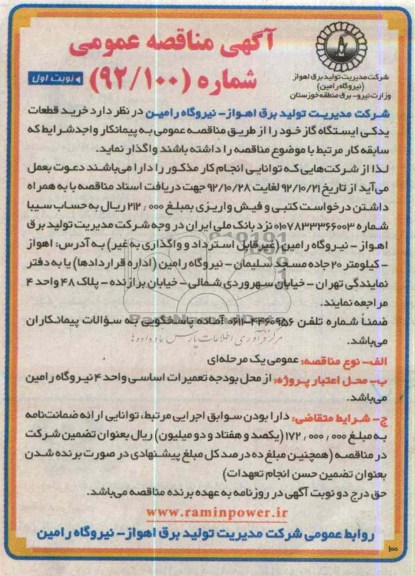 آگهی مناقصه عمومی
شماره (۹۲/۱۰۰)
نوبت اول
شرکت مدیریت تولید برق اهواز
(نیروگاه رامین)
وزارت نیرو- برق منطقه خوزستان
شرکت مدیریت تولید برق اهواز- نیروگاه رامین در نظر دارد خرید قطعات
یدکی ایستگاه گاز خود را از طریق مناقصه عمومی به پیمانکار واجد شرایط که
سابقه کار مرتبط با موضوع مناقصه را داشته باشند واگذار نماید.
لذا از شرکت‌هایی که توانایی انجام کار مذکور را دارا می‌باشند دعوت بعمل
می‌آید از تاریخ ۹۲/۱۰/۲۱ لغایت ۹۲/۱۰/۲۸ جهت دریافت اسناد مناقصه با به همراه
داشتن درخواست کتبی و فیش واریزی بمبلغ ۲۱۲,۰۰۰ ریال به حساب سیبا
شماره ۰۱۰۷۸۳۳۳۶۶۰۰۳ نزد بانک ملی ایران در وجه شرکت مدیریت تولید برق
اهواز - نیروگاه رامین (غیرقابل استرداد و واگذاری به غیر) به آدرس: اهواز
- کیلومتر ۲۰ جاده مسجد سلیمان - نیروگاه رامین (اداره قراردادها) یا به دفتر
نمایندگی تهران - خیابان سهروردی شمالی - خیابان برازنده - پلاک ۴۸ واحد ۴
مراجعه نمایند.
ضمناً شماره تلفن ۴۴۶۰۹۵۶-۰۶۱۱ آماده پاسخگویی به سؤالات پیمانکاران
می‌باشد.
الف- نوع مناقصه: عمومی یک مرحله‌ای
ب- محل اعتبار پروژه: از محل بودجه تعمیرات اساسی واحد ۴ نیروگاه رامین
می‌باشد.
ج- شرایط متقاضی: دارا بودن سوابق اجرایی مرتبط، توانایی ارائه ضمانت‌نامه
به مبلغ ۱۷۲,۰۰۰,۰۰۰ (یکصد و هفتاد و دو میلیون) ریال بعنوان تضمین شرکت
در مناقصه (همچنین مبلغ ده درصد کل مبلغ پیشنهادی در صورت برنده شدن
بعنوان تضمین حسن انجام تعهدات)
حق درج دو نوبت آگهی در روزنامه به عهده برنده مناقصه می‌باشد.
www.raminpower.ir
روابط عمومی شرکت مدیریت تولید برق اهواز- نیروگاه رامین
۱۰۰